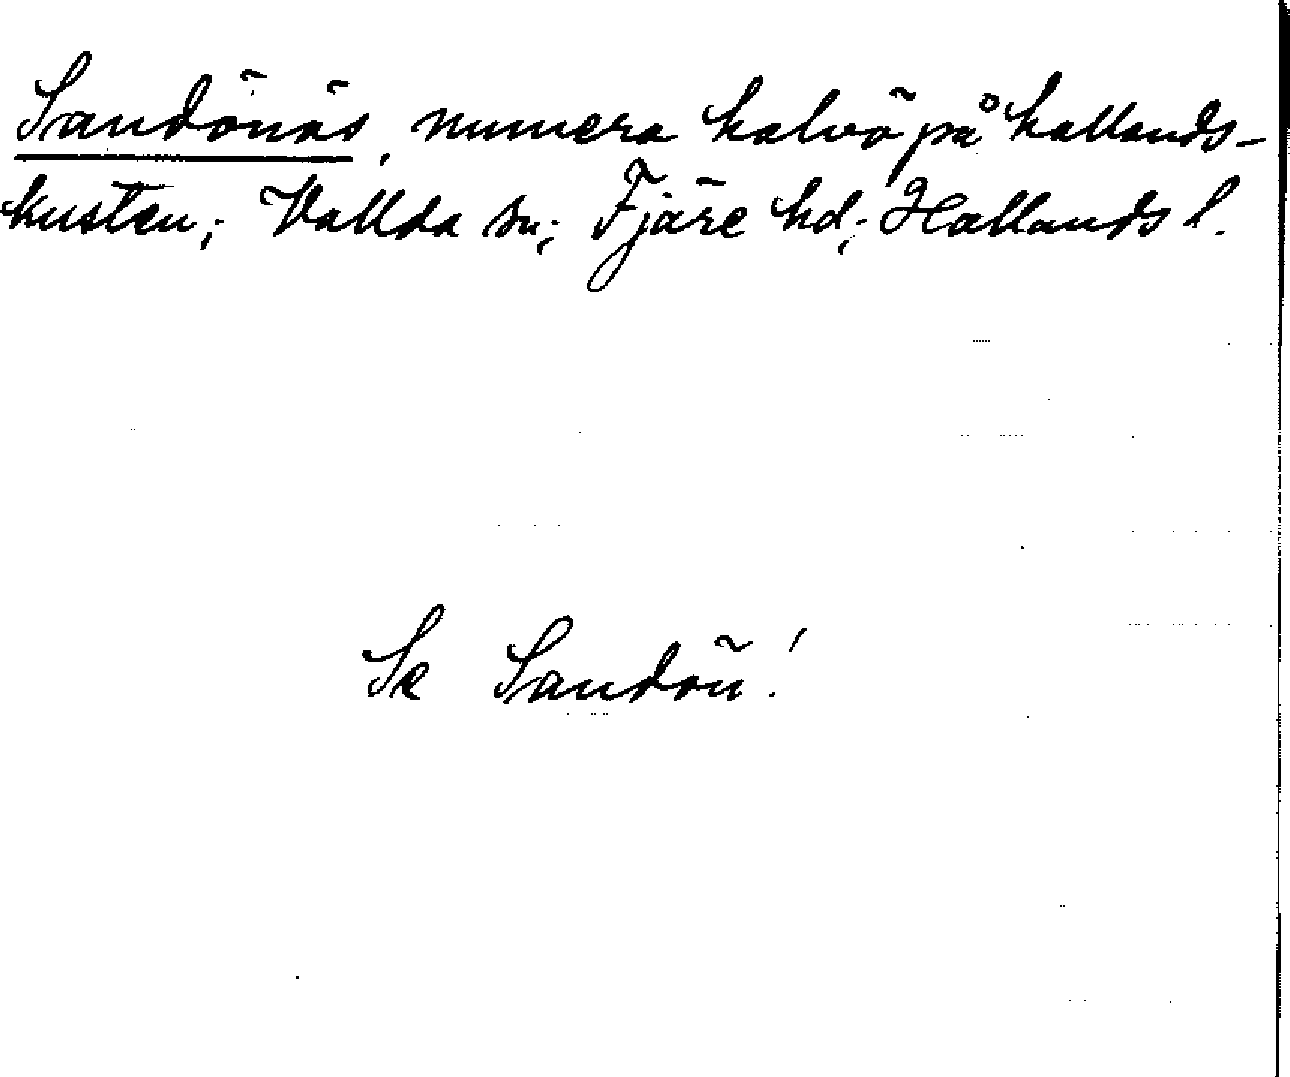 Sandönäs, numera halvö på hallands-
kusten; Vallda sn; Fjäre hd; Hallands l.
Se Sandön!